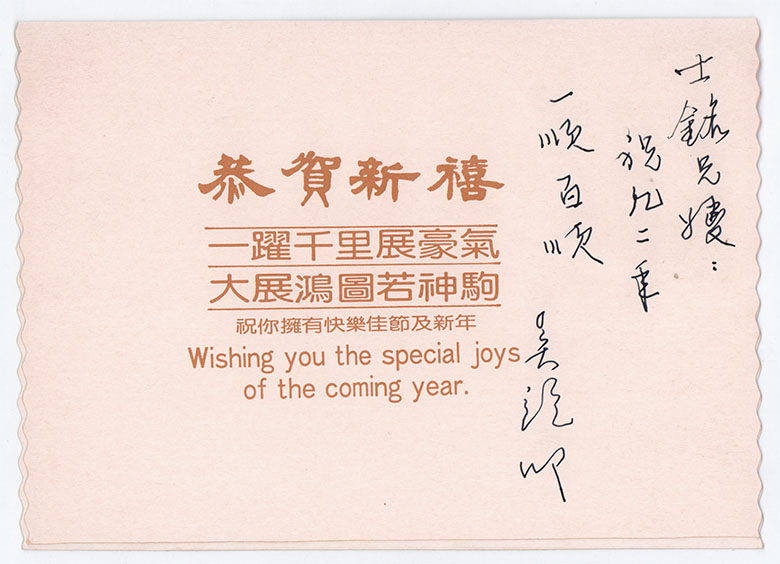 恭賀新禧
一躍千里展豪氣
大展鴻圖若神駒
祝你擁有快樂佳節及新年
Wishing you the special joys
of the coming year.
士銘兄嫂：
祝九二年
一順百順
吳 叩